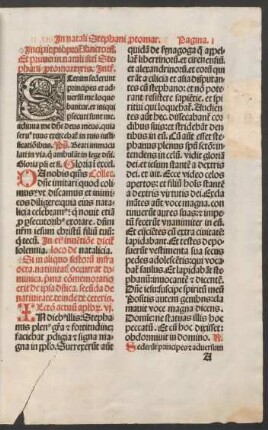 In natali Stephani ptomar.
Pagina. i
Incipit
Et primo in natali sci Ste
phani ptomartyris. Int.
Etenim sederunt
principes et ad
uersum me loque
bantur, et iniqui
psecuti sunt me.
adiuua me dñs deus meus, quia
seru tuus exercebat in tuis iusti
ficationibus. Ps. Beati immacu
lati in via, q ambulāt in lege dñi.
Gloria pri et fi. Gloria i excel.
DA nobis quis Collec.
dñe imitari quod coli
mus, vt discamus et inimi
cos diligere, quia eius nata
licia celebram, q nouit etiā
p psecutorib exorare. dñm
nrm iesum christū filiū tuū,
q tecū. In die inuētiōe dicit
solemnia, loco de natalicia.
Si in aliquo
octra. natiuitat occurrat do
minica, prima cōmemoratio
erit de ipsa dñica, secūda de
natiuitate, deinde de ceteris.
Lectio actuū aplor. vi.
IN diebus illis: Stepha
nus plen gra et fortitudine,
faciebat pdigia et signa
magna in pplo. Surrexerūt aūt
quidā de synagoga q appel
lat libertinorū, et cirenensiū,
et alexandrinorū, et eorū qui
erāt a cilicia et asia disputan
tes cū stephano: et nō pote
rant resistere sapiētie, et spi
ritui qui loquebat. Audien
tes aūt hec, dissecabant cor
dibus suis, et stridebāt denti
bus in eū. Cū aūt esset ste
phanus plenus spū sctō, in
tendens in celum, vidit glo
riā dei, et iesum stantē a dex
tris dei. et ait. Ecce video celos
apertos, et filiū hois stantē a
dextris virtutis dei. Excla
mātes aūt voce magna, con
tinuerūt aures suas: et impe
tum fecerūt vnanimiter in eū.
Et eijcientes eū extra ciuitatē
lapidabant. Et testes depo
suerūt vestimenta sua secus
pedes adolescētis, qui voca
bat saulus. Et lapidabāt ste
phanū inuocantē, et dicentē.
Dñe iesu, suscipe spiritū meū.
Positis autem genibus, cla
mauit voce magna dicens.
Domine, ne statuas illis hoc
peccatū. Et cū hoc dixisset:
obdormiuit in domino. R.
Sederūt principes et aduersum
A